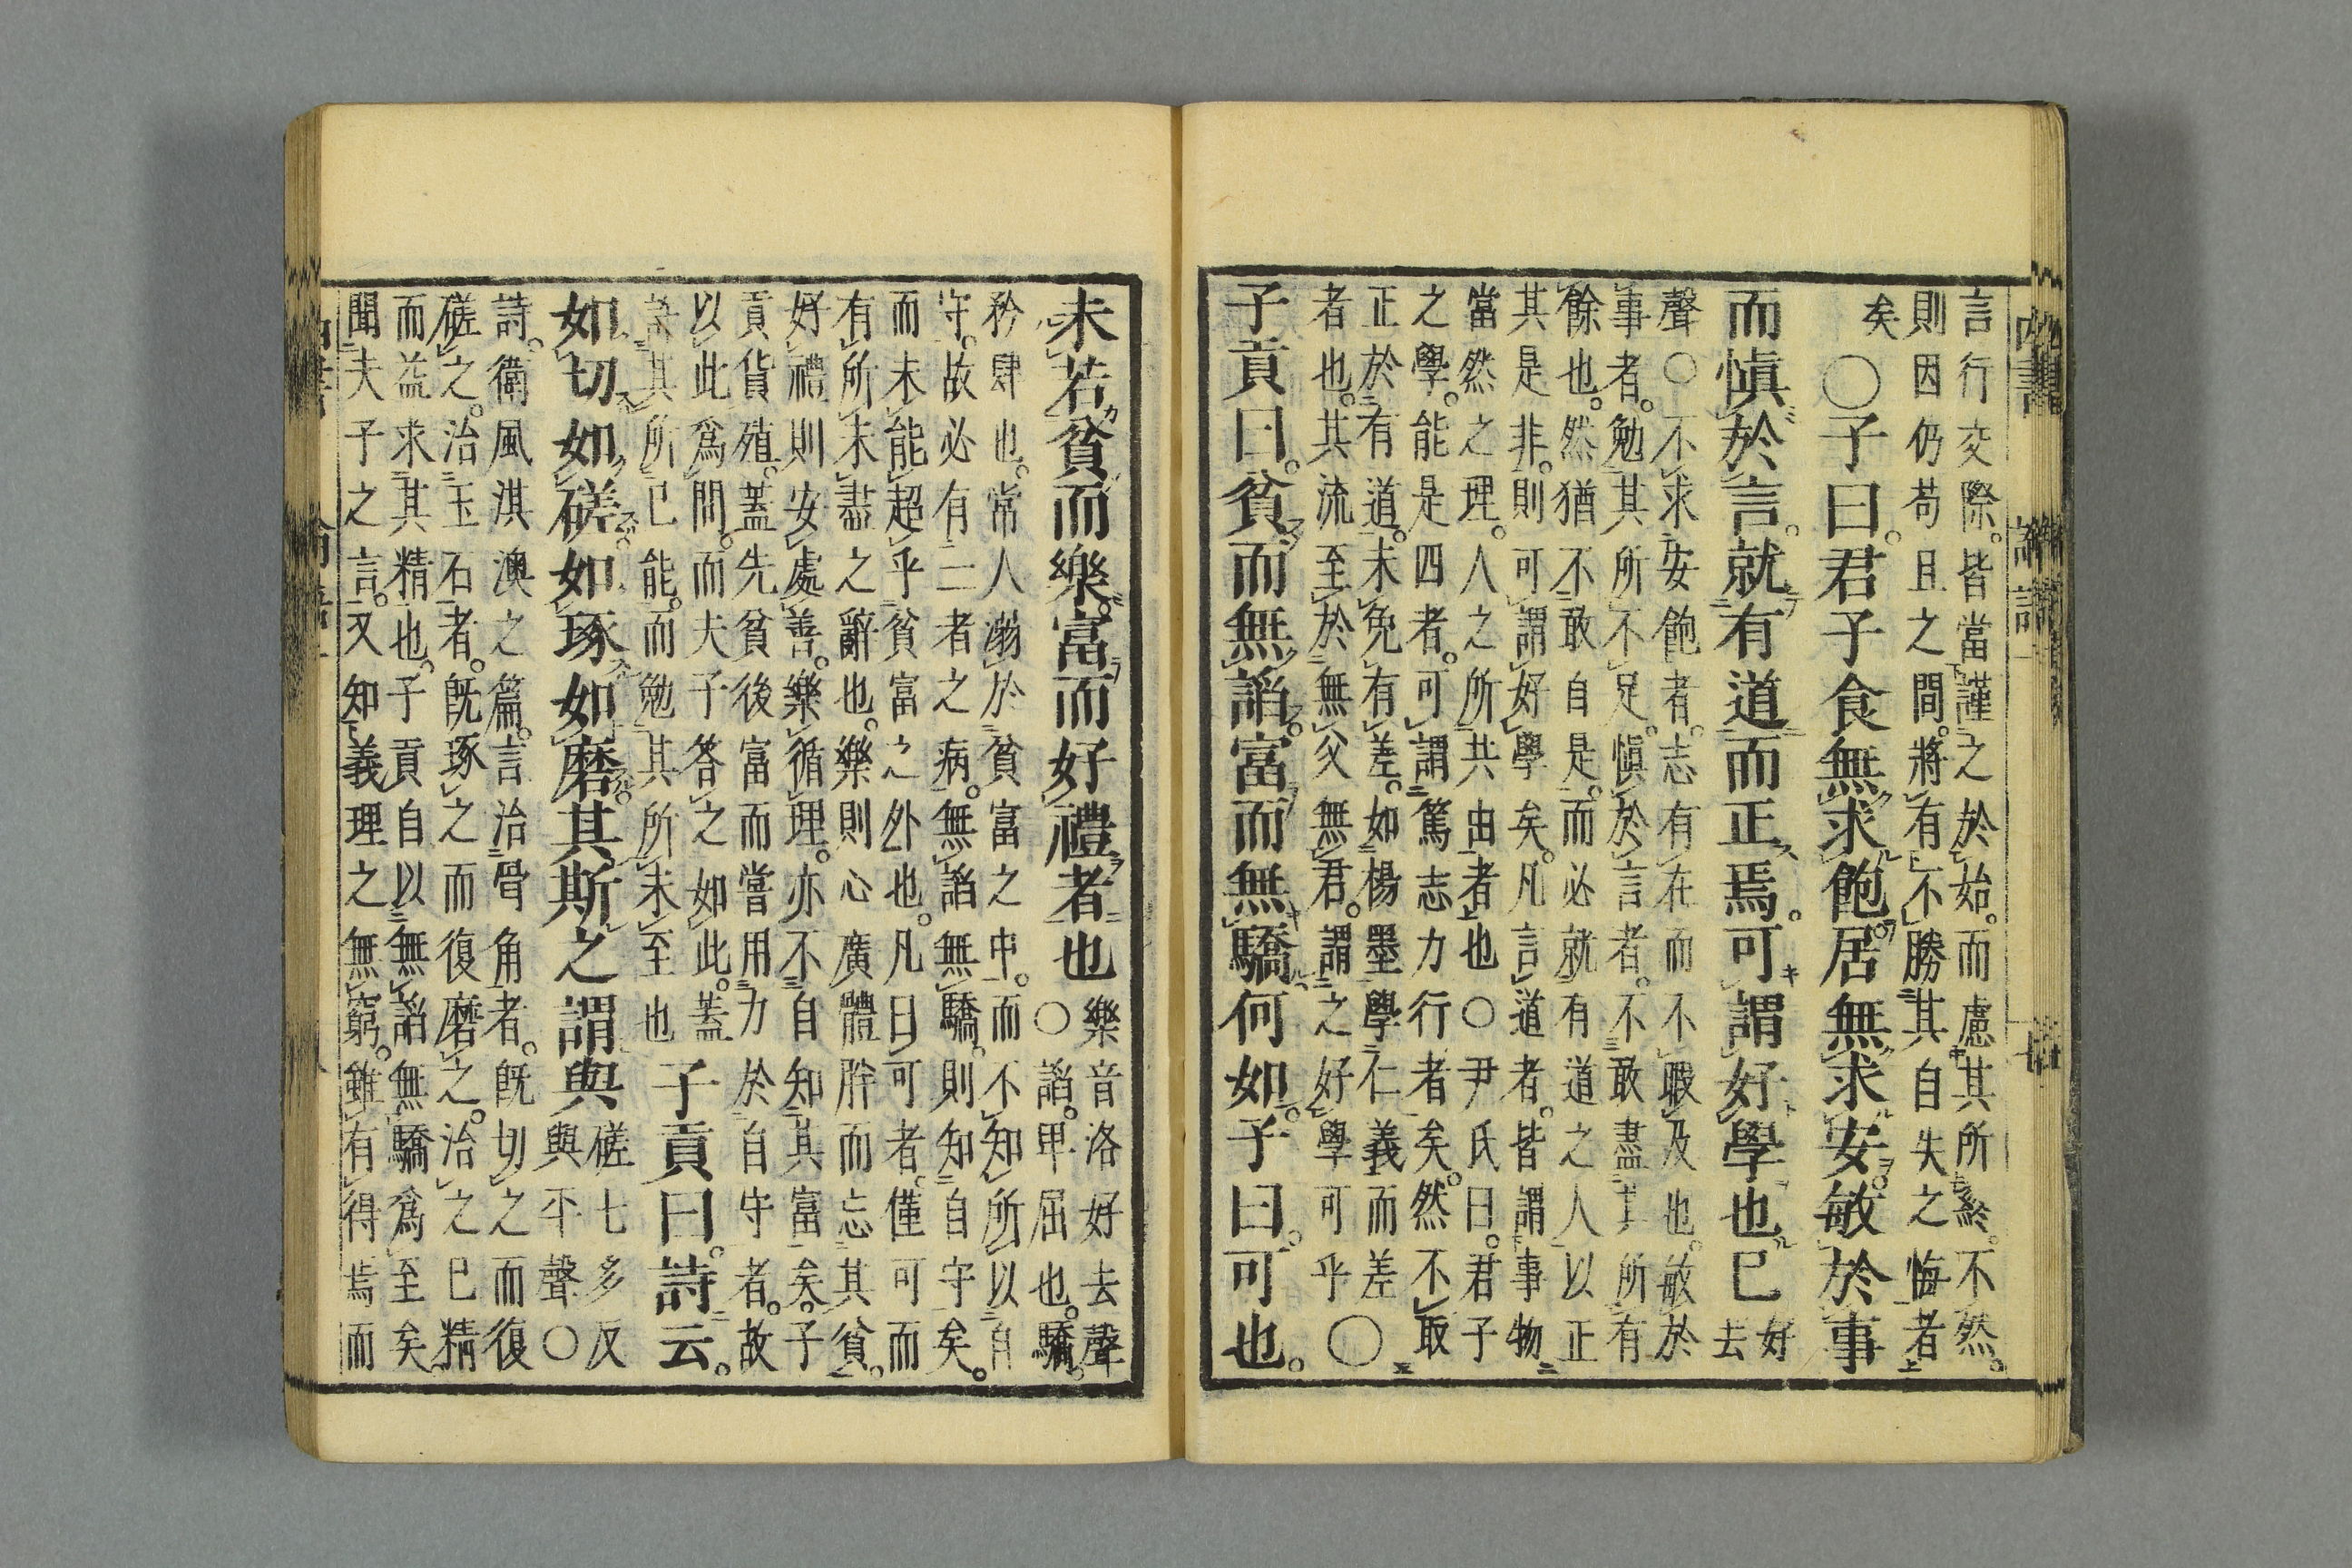 言行交際。皆當謹之於始。而慮其所終。不然。
則因仍苟且之間。將有不勝其自失之悔者
矣
○子曰。君子食無求飽。居無求安。敏於事
而慎於言。就有道而正焉。可謂好學也已
好
去
聲○不求安飽者。志有在而不暇及也。敏於
事者。勉其所不足。慎於言者。不敢盡其所有
餘也。然猶不敢自是。而必就有道之人以正
其是非。則可謂好學矣。凡言道者。皆謂事物
當然之理。人之所共由者也○尹氏曰。君子
之學。能是四者。可謂篤志力行者矣。然不取
正於有道。未免有差。如楊墨學仁義而差
者也。其流至於無父無君。謂之好學可乎
○
子貢曰。貧而無諂。富而無驕。何如。子曰。可也。
未若貧而樂。富而好禮者也
樂音洛好去聲
○諂。卑屈也。驕。
矜肆也。常人溺於貧富之中。而不知所以自
守。故必有二者之病。無諂無驕。則知自守矣。
而未能超乎貧富之外也。凡曰可者。僅可而
有所未盡之辭也。樂則心廣體胖而忘其貧。
好禮則安處善。樂循理。亦不自知其富矣。子
貢貨殖。蓋先貧後富而嘗用力於自守者。故
以此爲問。而夫子答之如此。蓋
許其所已能。而勉其所未至也
子貢曰。詩云。
如切如磋。如琢如磨。其斯之謂與
磋七多反
與平聲○
詩。衛風淇澳之篇。言治骨角者。既切之而復
磋之。治玉石者。既琢之而復磨之。治之已精
而益求其精也。子貢自以無諂無驕爲至矣。
聞夫子之言。又知義理之無窮。雖有得焉而